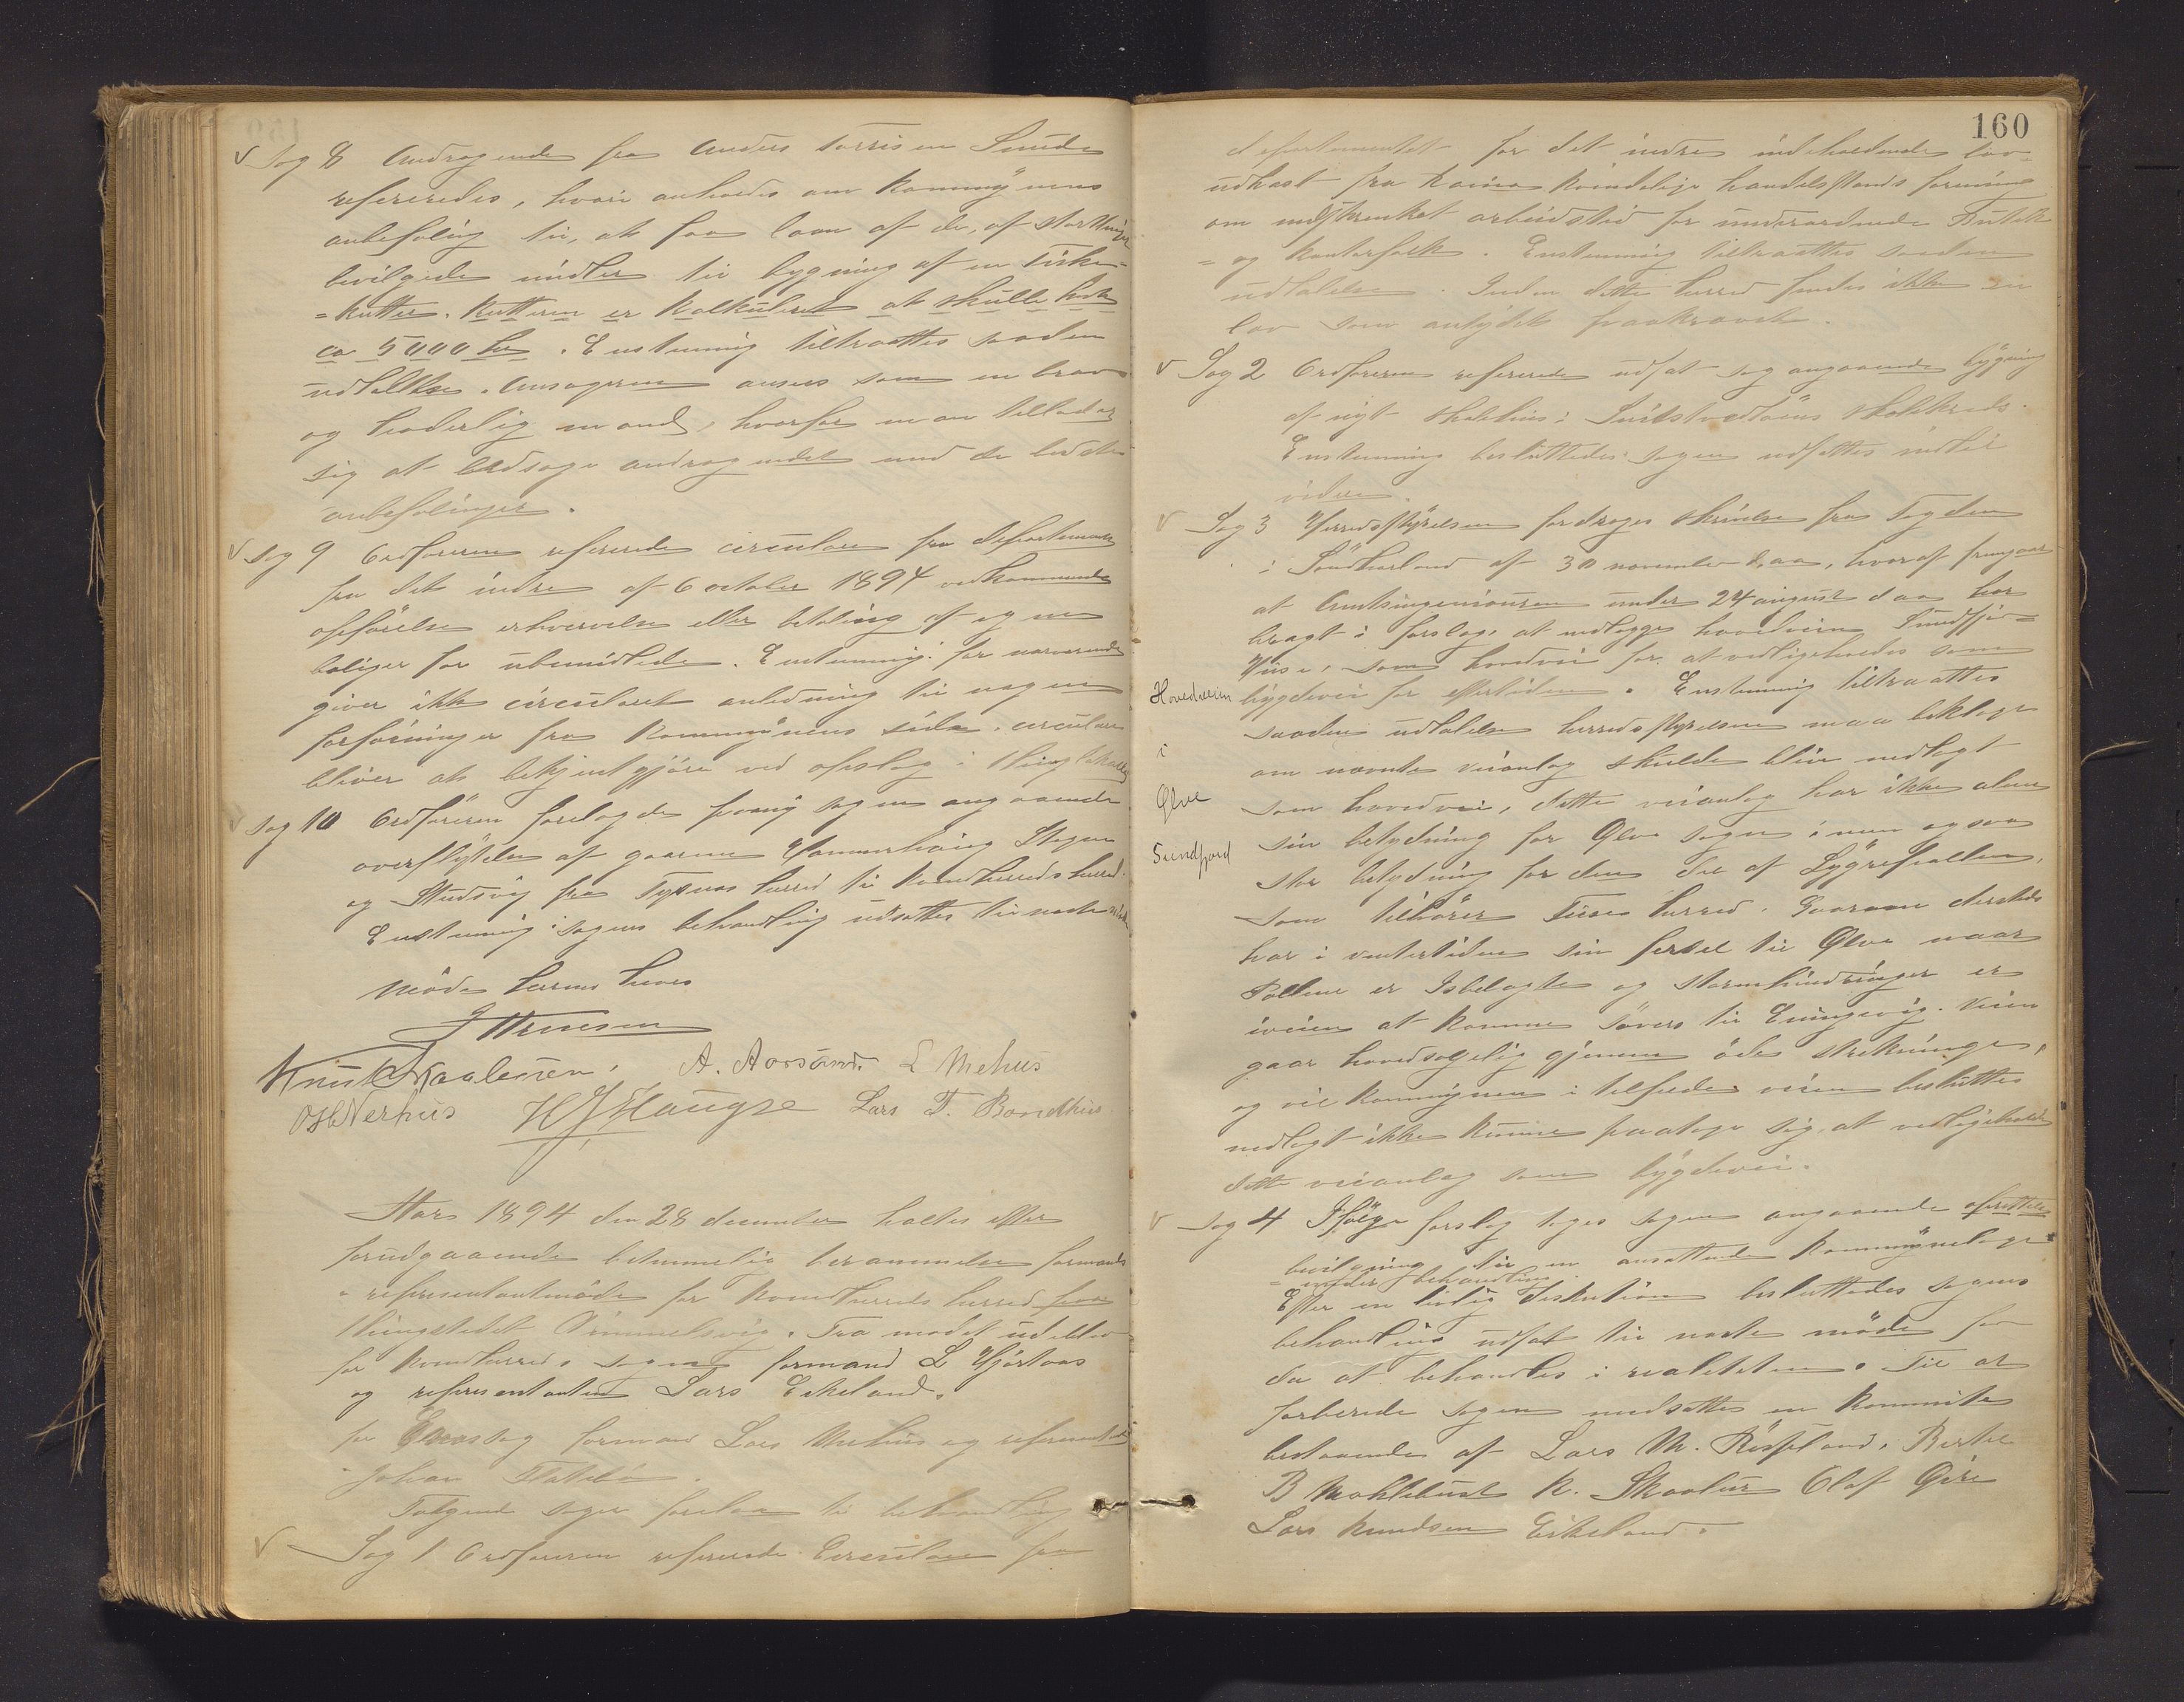 Sag 8 Andragende fra Anders Torrisen Sunde
refereredes, hvori anholdes om Kommunens
anbefaling til, at faa laan af de, af Storthinget
bevilgede midler til bygning af en Fiske-
=kutter. Kutteren er kalkuleret at skulle koste
ca 5000 kr. Enstemmig tiltraattes saadan
udtallelse. Ansøgeren ansees som en brav
og hæderlig mand, hvorfor man tillader
sig at ledsage andragendet med de bedste
anbefalinger.
Sag 9 Ordføreren refererede circulære fra Departement
for det indre af 6 october 1894 vedkommende
opførelse erhvervelse eller betaling af egne
boliger for ubemidlede. Enstemmig: for nærværende
giver ikke circulæret anledning til nogen
forføininger fra Kommunens side. circulæret
bliver at bekjentgjøre ved opslag i Thinglokalet
Sag 10 Ordføreren forelagde paany sagen angaaende
overflyttelse af gaarene Hammerhaug Stegen
og Studsvig fra Tysnes herred til Kvindherreds herred.
Enstemmig: sagens behandling udsættes til næste møde
Mødet herved hævet
J Thuesen
Knut Skaaleuren. A. Aarsand. L Mehus
O H Nerhus H J Haugse Lars T. Bondhus
Aar 1894 den 28 december holdtes efter
forudgaaende betimmelig berammelse formands
=representantmøde for Kvindherreds herred paa
thingstedet Vimmelsvig. Fra mødet udeblev
for Kvindherreds sogn formand L Hjørtaas
og representanten Lars Eikeland.
for sogn formand Lars Mehus og representant
Johan Flatebø.
Følgende sager forelaa til behandling
Sag 1 Ordføreren refererede Circulære fra
160
departementet for det indre indeholdende lov-
udkast fra kvindelige handelsstands forening
om indskrænket arbeidstid for underordnede Butik
= og kontorfolk. Enstemmig tiltraattes saadan
udtalelse. Inden dette herred findes ikke en
lov som antydet paakrævet.
Sag 2 Ordføreren refererede udsat sag angaaende bygning
af nyt skolehus i skolekreds.
Enstemmig besluttedes: sagen udsættes indtil
videre.
Sag 3 Herredsstyrelsen fordroges skrivelse fra Fogden
i Søndhorland af 30 november d. aa, hvoraf fremgaar
at Amtsingeniøren under 24 august d aa har
bragt i forslag, at nedlægge hovedveien Sundfjor=
Huse, som hovedvei for at vedligeholdes som
bygdevei for eftertiden. Enstemmig tiltraattes
saadan udtalelse herredsstyrelsen maa beklage
om nævnte veianlæg skulde blive nedlagt
som hovedvei, dette veianlæg har ikke alene
sin betydning for Ølve sogn i men ogsaa
stor betydning for den del af Lygrepollen,
som tilhører Fuse herred. Gaarene dersteds
har i vintertiden sin færsel til Ølve naar
Pollene er Isbelagte og stormhindringer er
iveien at komme søvers til Eningevig. Veien
gaar hovedsagelig gjennem øde strekninger,
og vil kommunen i tilfælde veien besluttes
nedlagt ikke kunne paatage sig, at vedligeholde
dette veianlæg som bygdevei.
Hovedveien
i
Ølve
Sundfjord
Sag 4 Ifølge forslag toges sagen angaaende oprettelse
bevilgning til en ansættende Kommunelæge
=under behandling.
Efter en livlig diskution besluttedes sagens
behandling udsat til næste møde for
da at behandles i realiteten. Til at
forberede sagen nedsattes en Kommite
bestaaende af Lars M. Røssland, Bertel
B Mehlebust K. Skaalur Olaf Øire
Lars Knudsen Eikeland.